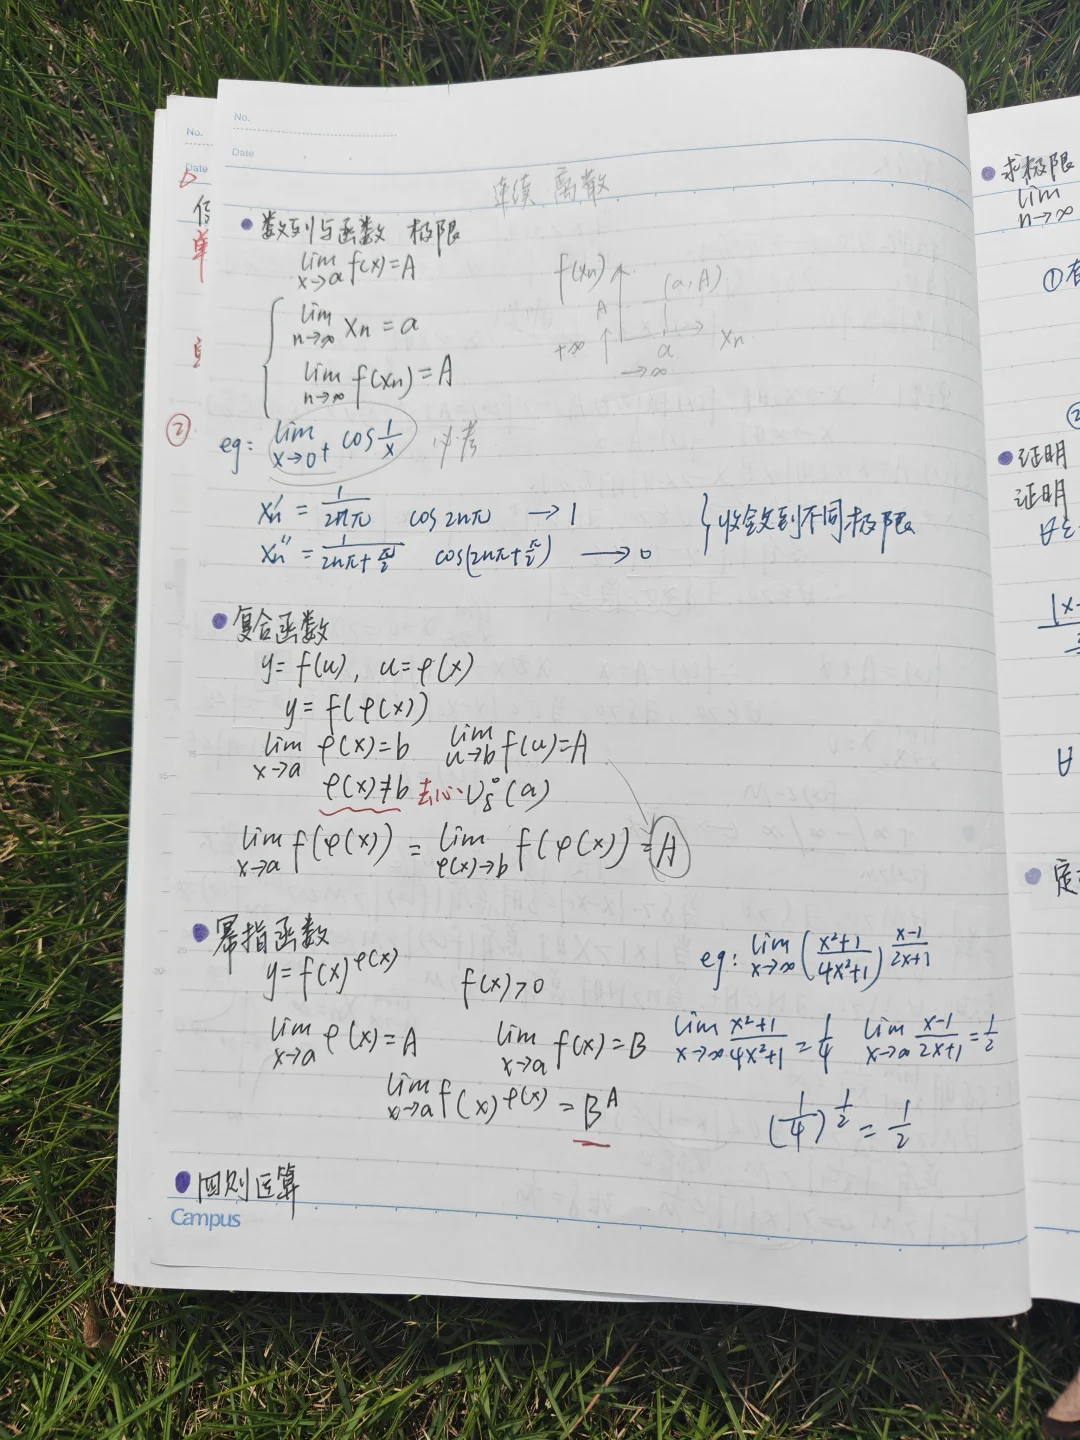 No.
Date
连续 离散
数列与函数 极限
lim x→a f(x)=A
lim n→∞ xn = a
lim n→∞ f(xn) = A
f(xn) A (a, A) +∞ a →∞ xn
② eg: lim x→0+ cos 1/x 必考
xn' = 1/2nπ cos2nπ → 1
xn'' = 1/(2nπ+π/2) cos(2nπ+π/2) → 0
} 收敛到不同极限
复合函数
y = f(u), u = φ(x)
y = f(φ(x))
lim x→a φ(x)=b lim u→b f(u)=A
φ(x)≠b 去心 U°δ(a)
lim x→a f(φ(x)) = lim φ(x)→b f(φ(x)) = A
幂指函数
y = f(x)^φ(x) f(x)>0
lim x→a φ(x) = A lim x→a f(x) = B
lim x→a f(x)^φ(x) = B^A
eg: lim x→∞ ((x²+1)/(4x²+1))^((x-1)/(2x+1))
lim x→∞ (x²+1)/(4x²+1) = 1/4 lim x→∞ (x-1)/(2x+1) = 1/2
(1/4)^(1/2) = 1/2
四则运算
Campus
No.
Date
单
求极限
lim n→∞
①
②
证明
证明
∀ε
∀
定